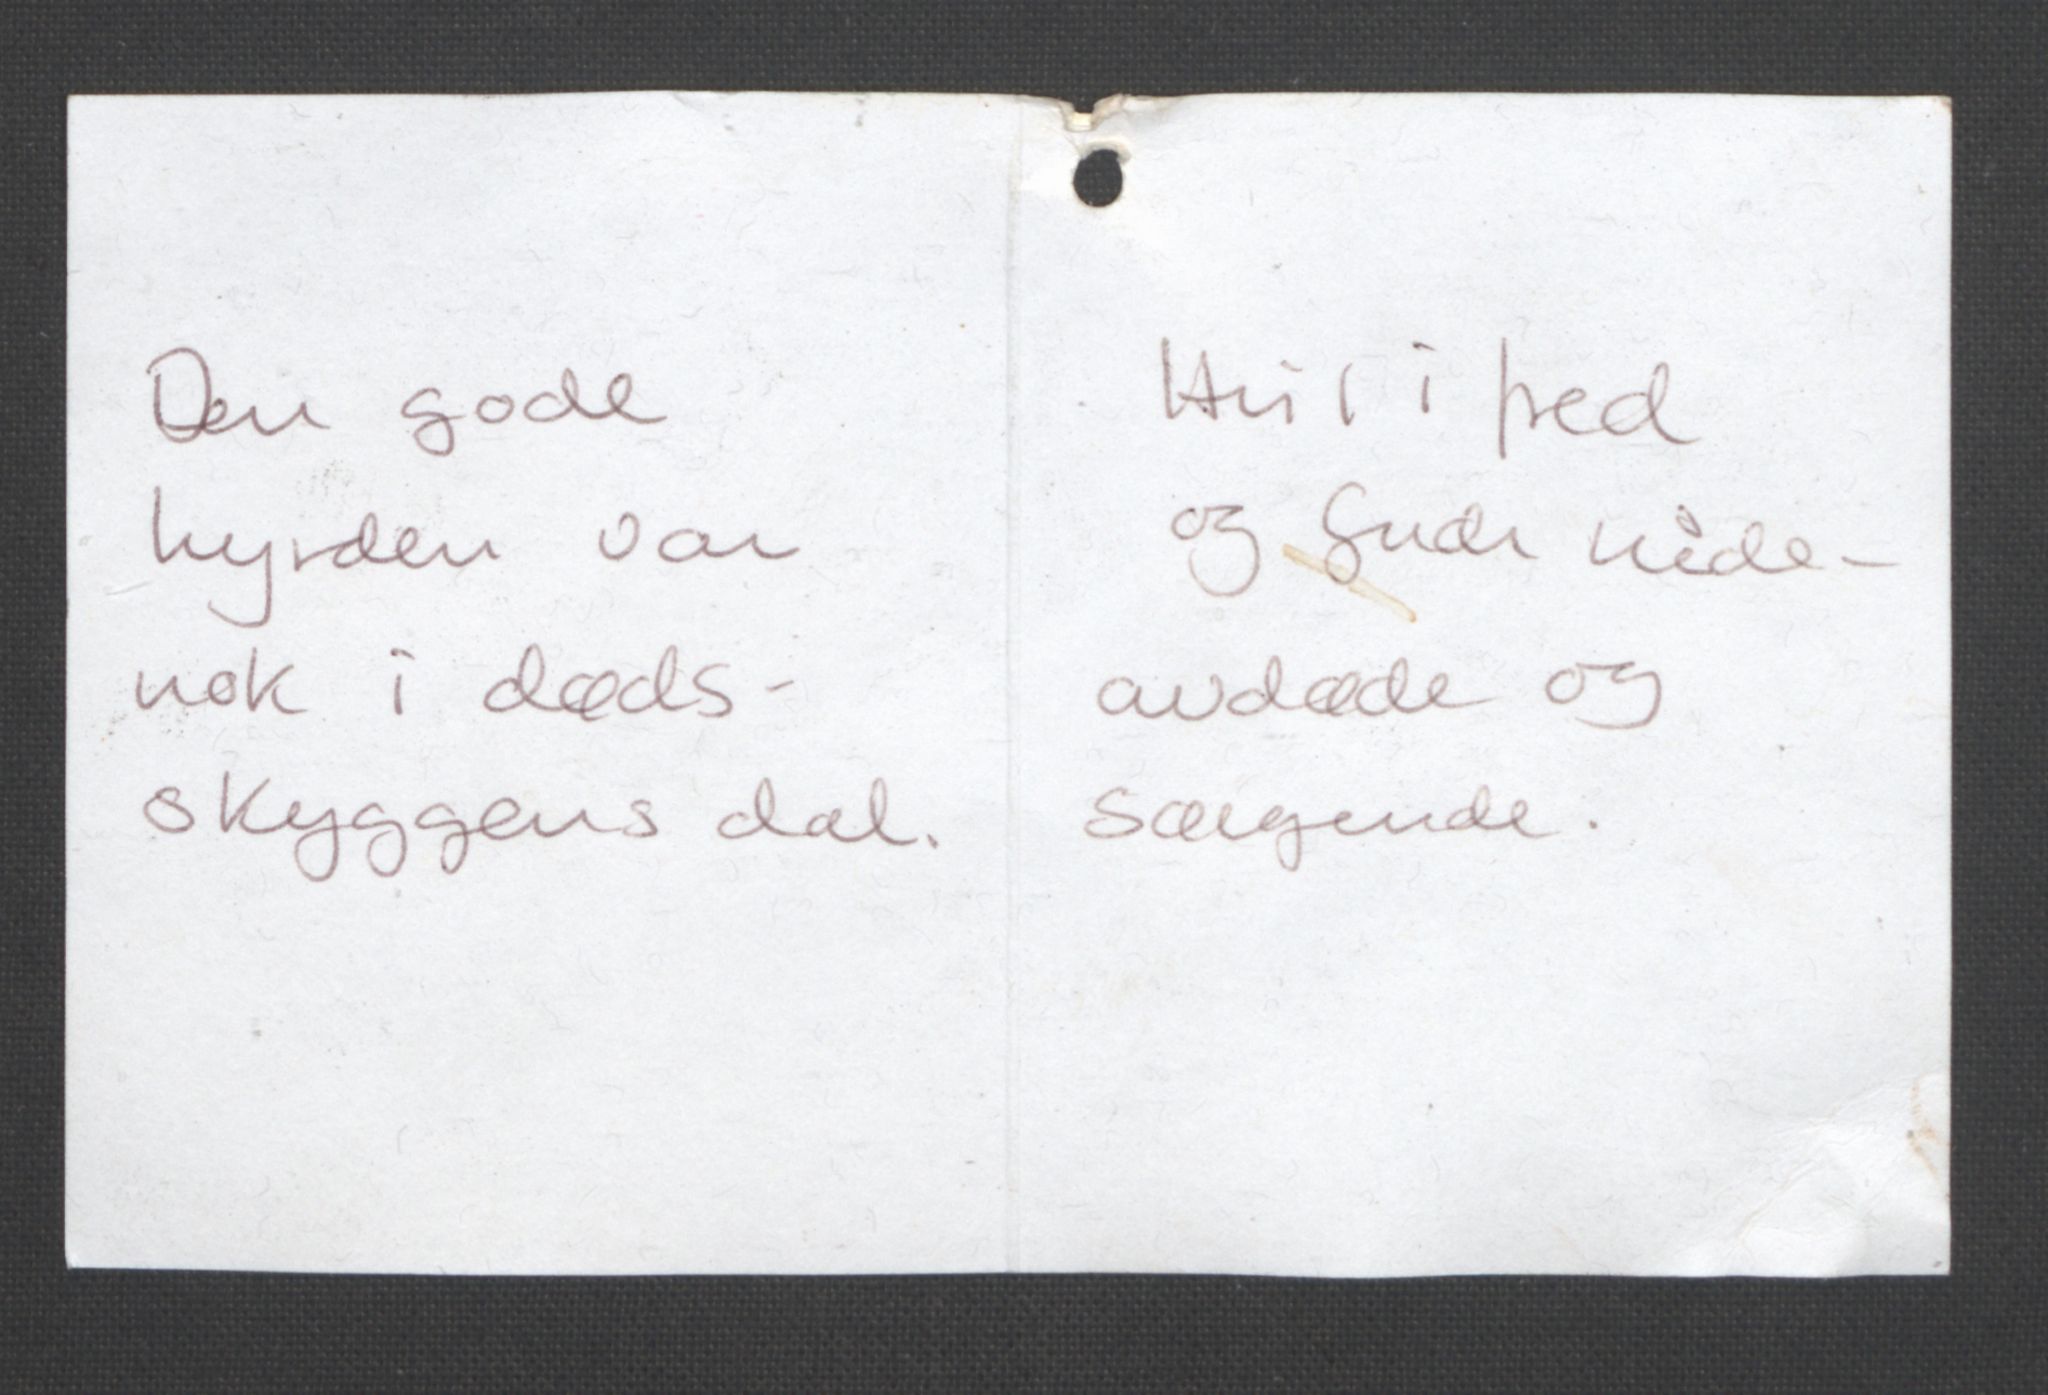 Den gode
hyrden var
nok i døds-
skyggens dal.
Hvil i fred
og Guds nåde-
avdøde og
sørgende.